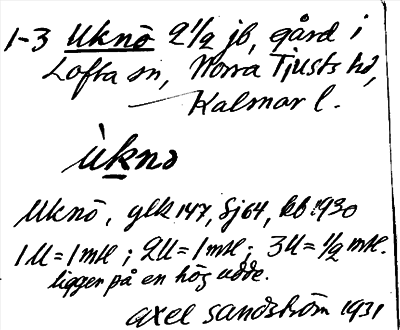 1-3 Uknö 2 1/2 jb, gård i
Lofta sn, Norra Tjusts hd,
Kalmar l.
ùkno
Uknö, glk 147, Sj64, kb 1930
1U=1mtl; 2U=1mtl; 3U=1/2 mtl.
ligger på en hög udde.
Axel Sandström 1931